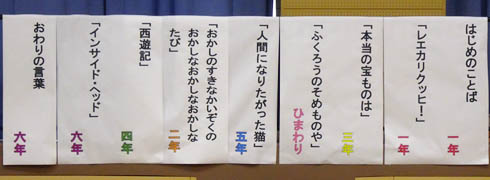 はじめのことば
一年
「レエカリクッヒ！」
一年
「本当の宝ものは」
三年
「ふくろうのそめものや」
ひまわり
「人間になりたがった猫」
五年
「おかしのすきなかいぞくの
おかしなおかしなおかしな
たび」
二年
「西遊記」
四年
「インサイド・ヘッド」
六年
おわりの言葉
六年